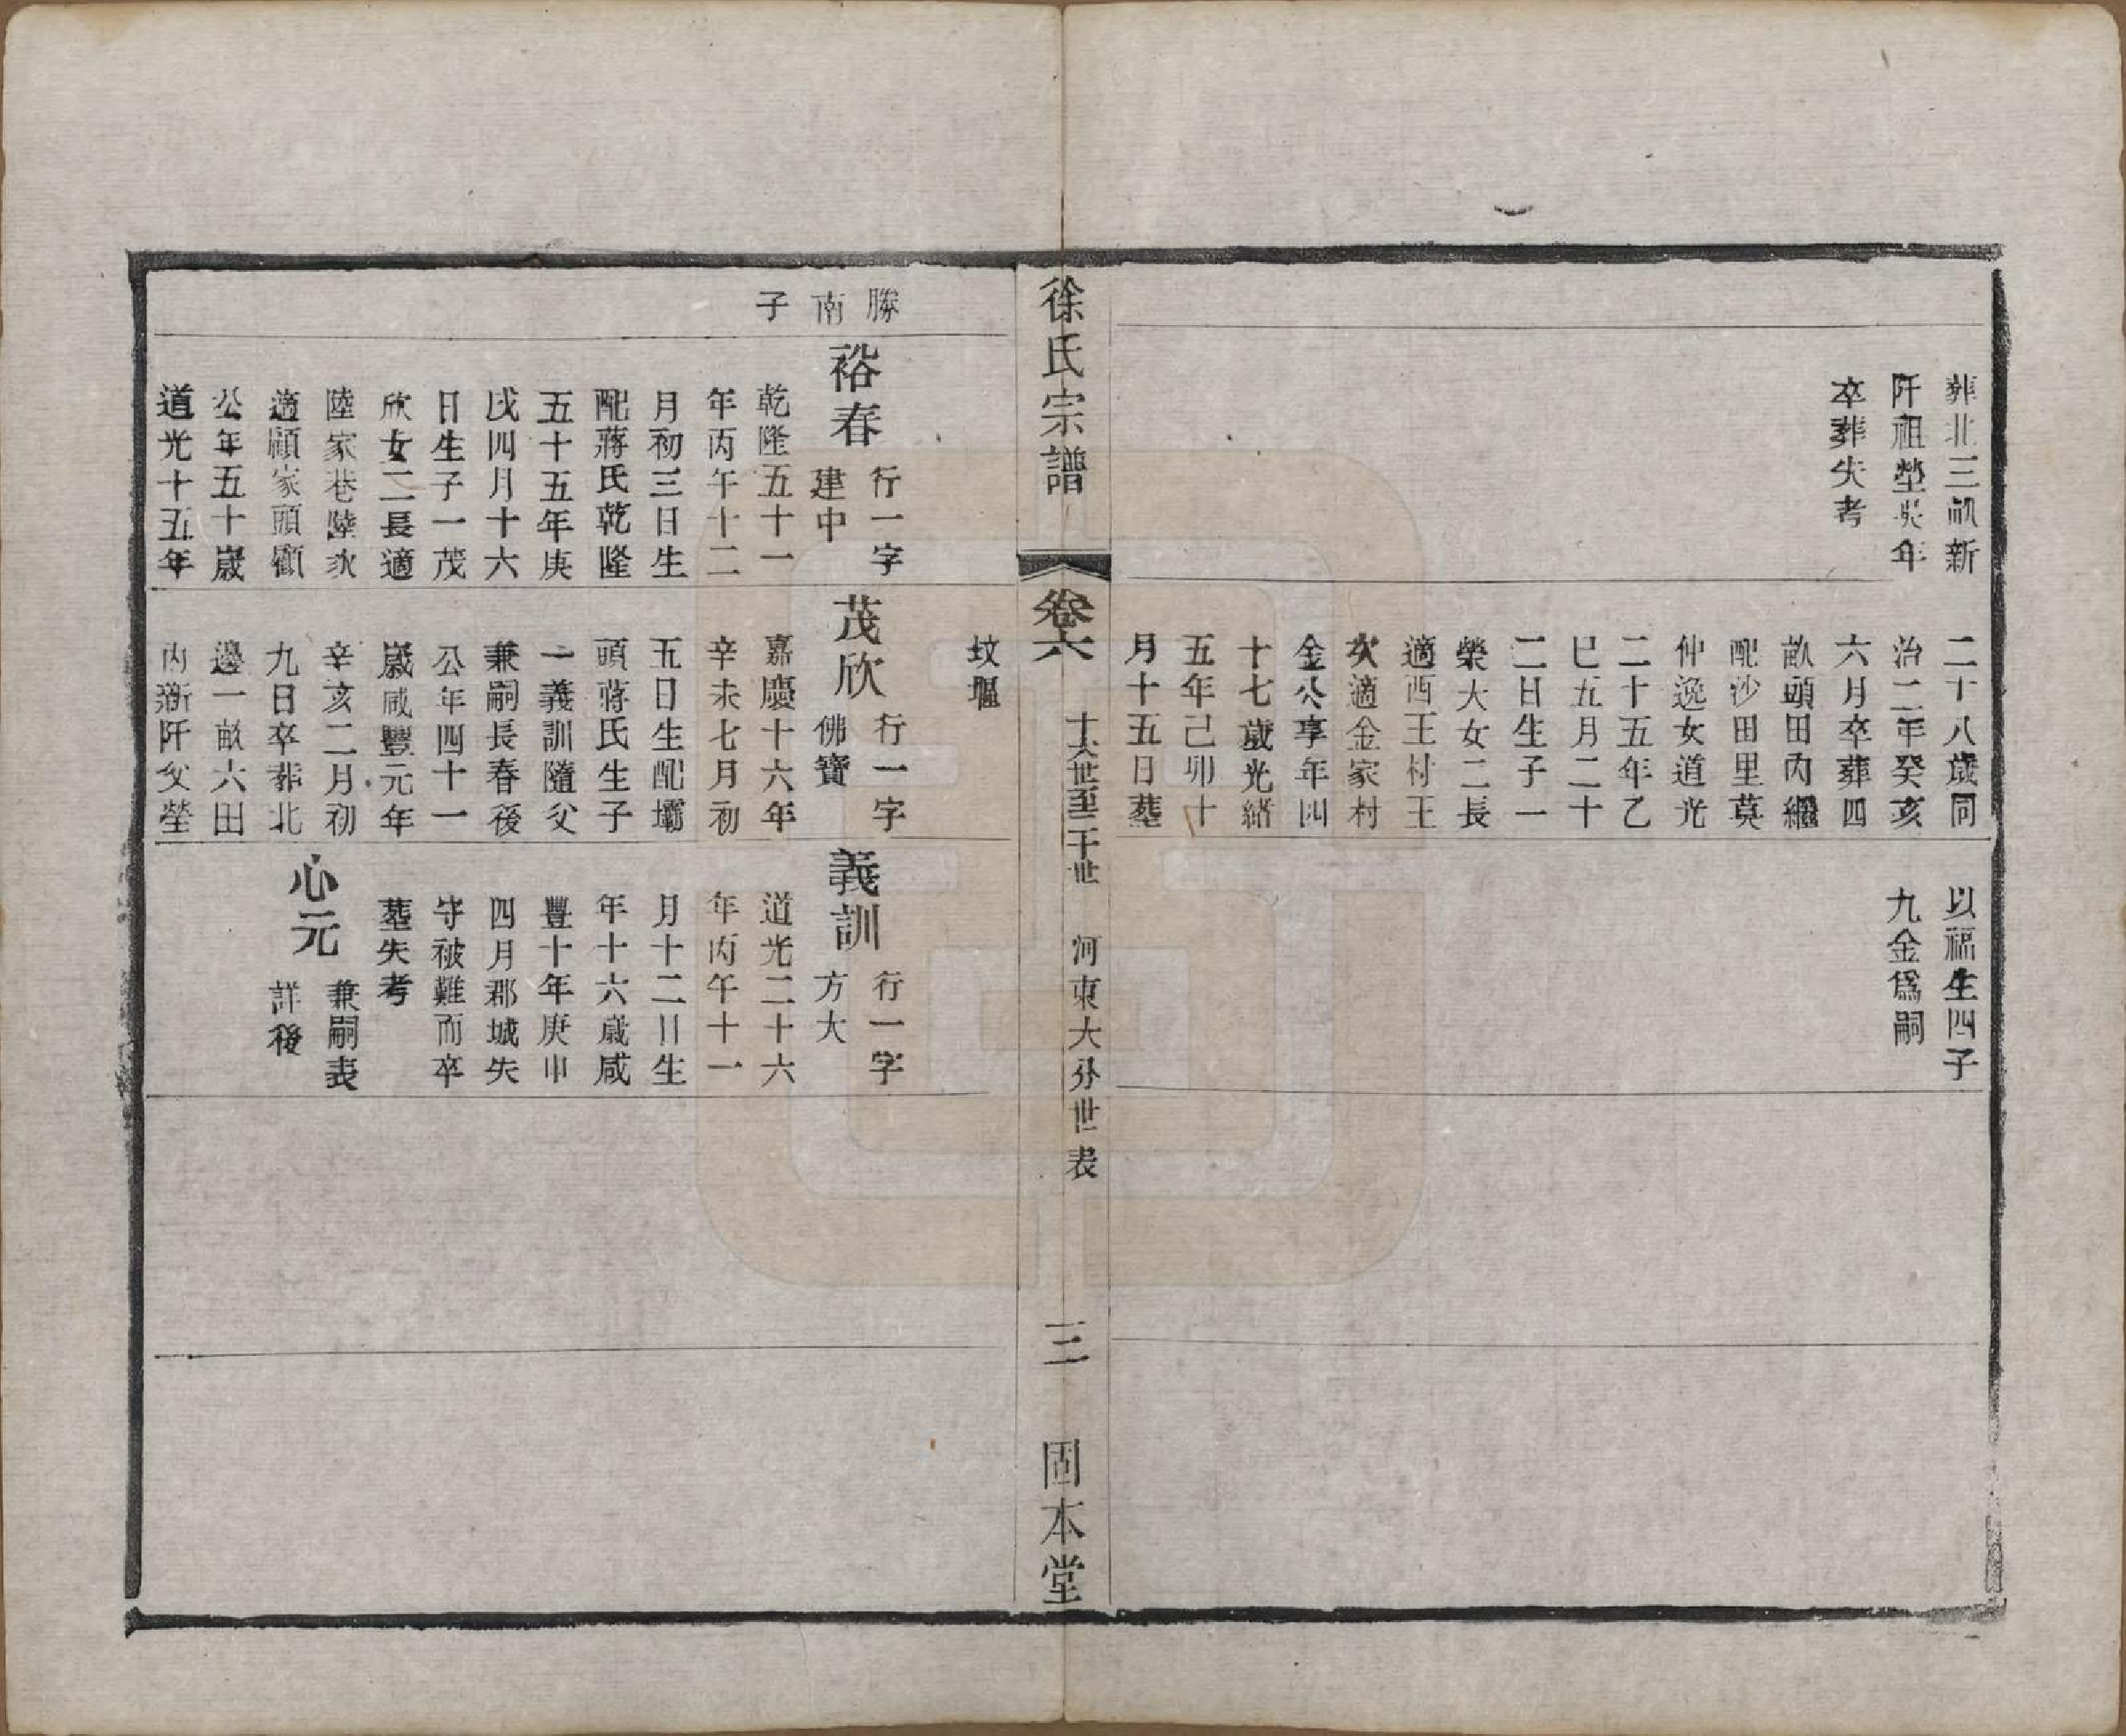 葬北三畝新
阡祖塋吳年
卒葬失考
二十八歲同
治二年癸亥
六月卒葬四
畝頭田內繼
配沙田里莫
仲逸女道光
二十五年乙
巳五月二十
二日生子一
榮大女二長
適西王村王
次適金家村
金公享年四
十七歲光緒
五年己卯十
月十五日葬
以福生四子
九金爲嗣
徐氏宗譜
卷六
十六世至二十世
河東大分世表
三
固本堂
坟堰
勝
南
子
裕春
行一字
建中
乾隆五十一
年丙午十二
月初三日生
配蔣氏乾隆
五十五年庚
戌四月十六
日生子一茂
欣女二長適
陸家巷陸次
適顧家頭顧
公年五十歲
道光十五年
茂欣
行一字
佛寶
嘉慶十六年
辛未七月初
五日生配壩
頭蔣氏生子
一義訓隨父
兼嗣長春後
公年四十一
歲咸豐元年
辛亥二月初
九日卒葬北
邊一畝六田
內新阡父塋
義訓
行一字
方大
道光二十六
年丙午十一
月十二日生
年十六歲咸
豐十年庚申
四月郡城失
守被難而卒
塟失考
心元
兼嗣表
詳後